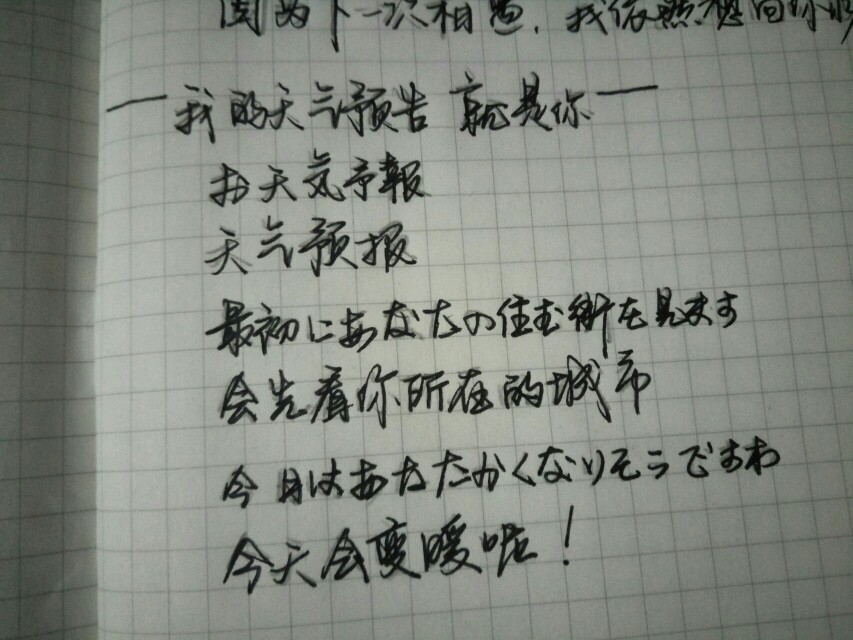 因为下一次相遇，我依然想向你
——我的天气预告 就是你——
お天気予報
天气预报
最初にあなたの住む街を見ます
会先看你所在的城市
今日はあたたかくなりそうですね
今天会变暖呢！